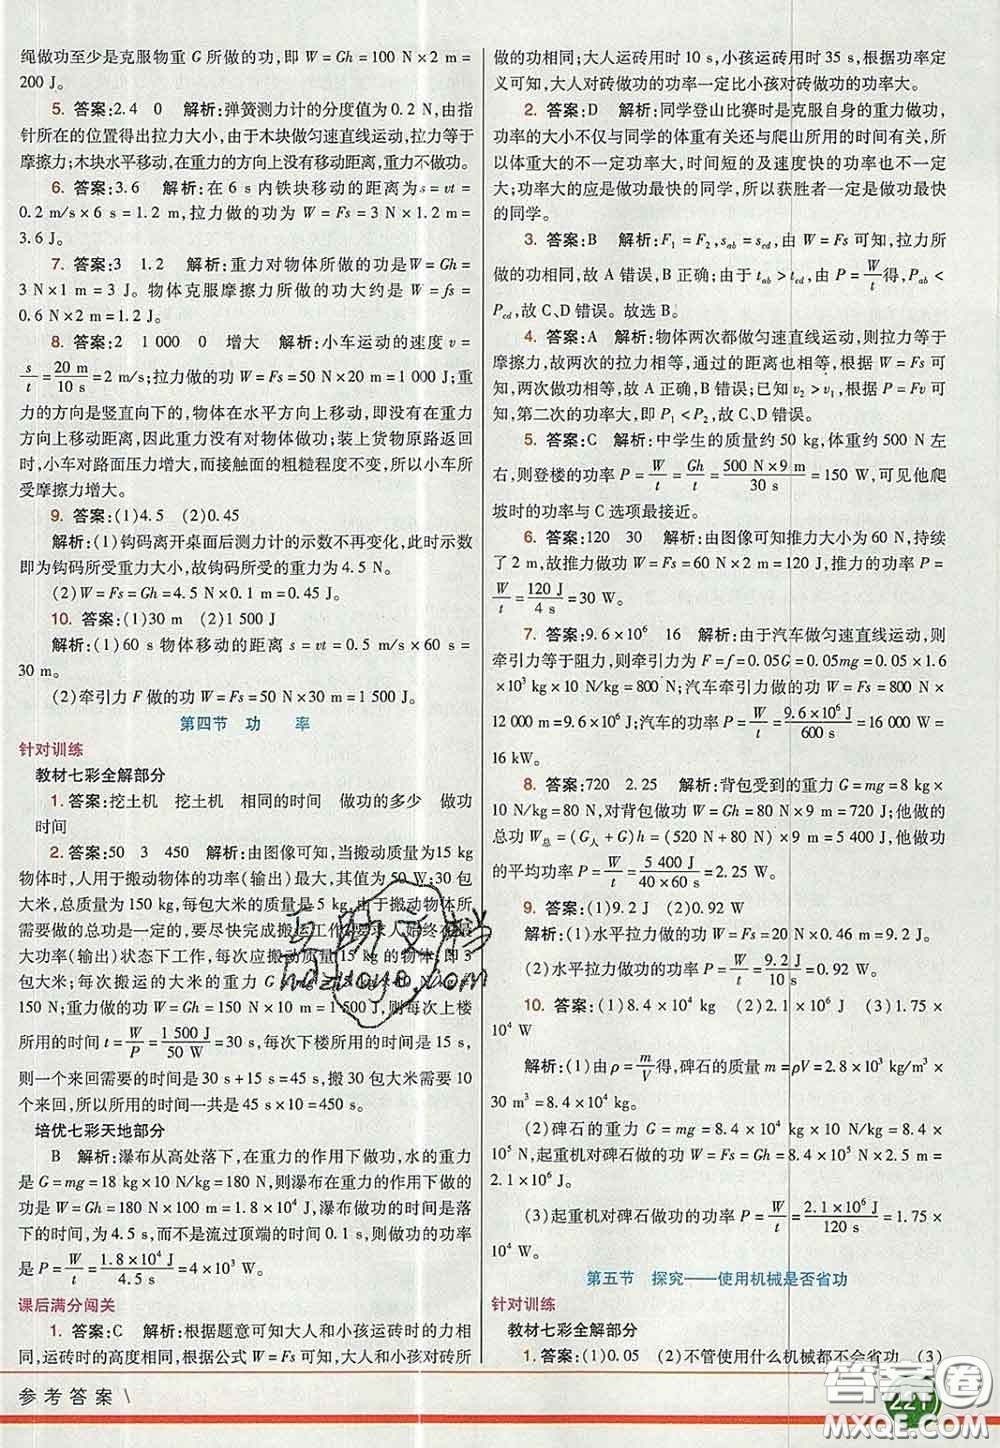 绳做功至少是克服物重 G 所做的功,即 W=Gh=100 N×2 m=
200 J。
5. 答案:2.4 0 解析:弹簧测力计的分度值为 0.2 N,由指
针所在的位置得出拉力大小,由于木块做匀速直线运动,拉力等于
摩擦力;木块水平移动,在重力的方向上没有距离,重力不做功。
6. 答案:3.6 解析:在 6 s 内铁块移动的距离为 s=vt=
0.2 m/s×6 s=1.2 m,拉力做的功为 W=Fs=3 N×1.2 m=
3.6 J。
7. 答案:3 1.2 解析:重力对物体所做的功是 W=Gh=
3 N×1 m=3 J。物体克服摩擦力所做的功大约是 W=fs=
0.6 N×2 m=1.2 J。
8. 答案:2 1 000 0 增大 解析:小车运动的速度 v=
s/t=20 m/10 s=2 m/s;拉力做的功 W=Fs=50 N×20 m=1 000 J;重
力的方向是竖直向下的,物体在水平方向上移动,即没有在重力
方向上移动距离,因此重力没有对物体做功;装上货物原路返回
时,小车对路面压力增大,而接触面的粗糙程度不变,所以小车所
受摩擦力增大。
9. 答案:(1)4.5 (2)0.45
解析:(1)钩码离开桌面后测力计的示数不再变化,此时示数
即为钩码所受重力大小,故钩码所受的重力为 4.5 N。
(2)W=Fs=Gh=4.5 N×0.1 m=0.45 J。
10. 答案:(1)30 m (2)1 500 J
解析:(1)60 s 物体移动的距离 s=vt=0.5 m/s×60 s=
30 m。
(2)牵引力 F 做的功 W=Fs=50 N×30 m=1 500 J。
第四节 功 率
针对训练
教材七彩全解部分
1. 答案:挖土机 挖土机 相同的时间 做功的多少 做功
时间
2. 答案:50 3 450 解析:由图像可知,当搬动质量为15 kg
物体时,人用于搬动物体的功率(输出)最大,其值为 50 W;30 包
大米,总质量为 150 kg,每包大米的质量为 5 kg,由于搬动物体所
需要做的总功是一定的,要尽快完成搬运工作,要求人始终在最
大功率(输出)状态下工作,每次应搬动质量 15 kg 的物体,即 3
包大米;每次搬运的大米的重力 G=mg=15 kg×10 N/kg=
150 N;重力做的功 W=Gh=150 N×10 m=1 500 J,每次上楼
所用的时间 t=W/P=1 500 J/50 W=30 s,每次下楼所用的时间是 15 s,
则一个来回需要的时间是 30 s+15 s=45 s,搬 30 包大米需要 10
个来回,所以所用的时间一共是 45 s×10=450 s。
培优七彩天地部分
B 解析:瀑布从高处落下,在重力的作用下做功,水的重力
是 G=mg=18 kg×10 N/kg=180 N,瀑布在重力的作用下做的
功为 W=Gh=180 N×100 m=1.8×10⁴ J,瀑布从高处落下落
的时间,为 4.5 s,而不是流过顶端的时间 0.1 s,则做功的功率
是 P=W/t=1.8×10⁴ J/4.5 s=4 000 W。
课后满分闯关
1. 答案:C 解析:根据题意可知大人和小孩运砖时的力相
同,运砖时的高度相同,根据公式 W=Fs 可知,大人和小孩对砖所
做的功相同;大人运砖用时 10 s,小孩运砖用时 35 s,根据功率定
义可知,大人对砖做功的功率一定比小孩对砖做功的功率大。
2. 答案:D 解析:同学登山比赛时是克服自身的重力做功,
功率的大小不仅与同学的体重有关还与爬山所用的时间有关,
所以体重大的不一定功率大,时间短的及速度快的也不一定功率
大;功率大的应是做功最快的同学,所以获胜者一定是做功最快
的同学。
3. 答案:B 解析:F₁=F₂,sab=scd,由 W=Fs 可知,拉力所
做的功相同,故 A 错误,B 正确;由于 tab>tcd,由 P=W/t得,Pab<
Pcd,故 C、D 错误。故选 B。
4. 答案:A 解析:物体两次都做匀速直线运动,则拉力等于
摩擦力,故两次的拉力相等,通过的距离也相等,根据 W=Fs 可
知,两次做功相等,故 A 正确,B 错误;已知 v₂>v₁,根据 P=Fv 可
知,第二次的功率大,即 P₁<P₂,故 C、D 错误。
5. 答案:C 解析:中学生的质量约 50 kg,体重约 500 N 左
右,则登楼的功率 P=W/t=Gh/t=500 N×9 m/30 s=150 W,可见他爬
坡时的功率与 C 选项最接近。
6. 答案:120 30 解析:由图像可知推力大小为 60 N,持续
了 2 m,故推力做功 W=Fs=60 N×2 m=120 J,推力的功率 P=
W/t=120 J/4 s=30 W。
7. 答案:9.6×10⁶ 16 解析:由于汽车做匀速直线运动,则
牵引力等于阻力,则牵引力为 F=f=0.05G=0.05mg=0.05×1.6
×10³ kg×10 N/kg=800 N;汽车牵引力做的功 W=Fs=800 N×
12 000 m=9.6×10⁶ J;汽车的功率 P=W/t=9.6×10⁶ J/600 s=16 000 W=
16 kW。
8. 答案:720 2.25 解析:背包受到的重力 G=mg=8 kg
×10 N/kg=80 N,对背包做功 W=Gh=80 N×9 m=720 J;他做的
总功 W总=(G人+G)h=(520 N+80 N)×9 m=5 400 J,他做功
的平均功率 P=W/t=5 400 J/40×60 s=2.25 W。
9. 答案:(1)9.2 J (2)0.92 W
解析:(1)水平拉力做的功 W=Fs=20 N×0.46 m=9.2 J。
(2)水平拉力做功的功率 P=W/t=9.2 J/10 s=0.92 W。
10. 答案:(1)8.4×10⁴ kg (2)2.1×10⁶ J (3)1.75×
10⁴ W
解析:(1)由 ρ=m/V得,碑石的质量 m=ρV=2.8×10³ kg/m³×
30 m³=8.4×10⁴ kg。
(2)碑石的重力 G=mg=8.4×10⁴ kg×10 N/kg=8.4×10⁵
N,起重机对碑石做的功 W=Gh=8.4×10⁵ N×2.5 m=
2.1×10⁶ J。
(3)起重机对碑石做功的功率 P=W/t=2.1×10⁶ J/120 s=1.75×
10⁴ W。
第五节 探究——使用机械是否省功
针对训练
教材七彩全解部分
1. 答案:(1)0.05 (2)不管使用什么机械都不会省功 (3)
参考答案
221
互助文档
hdzuoye.com
答案圈
MXQE.COM